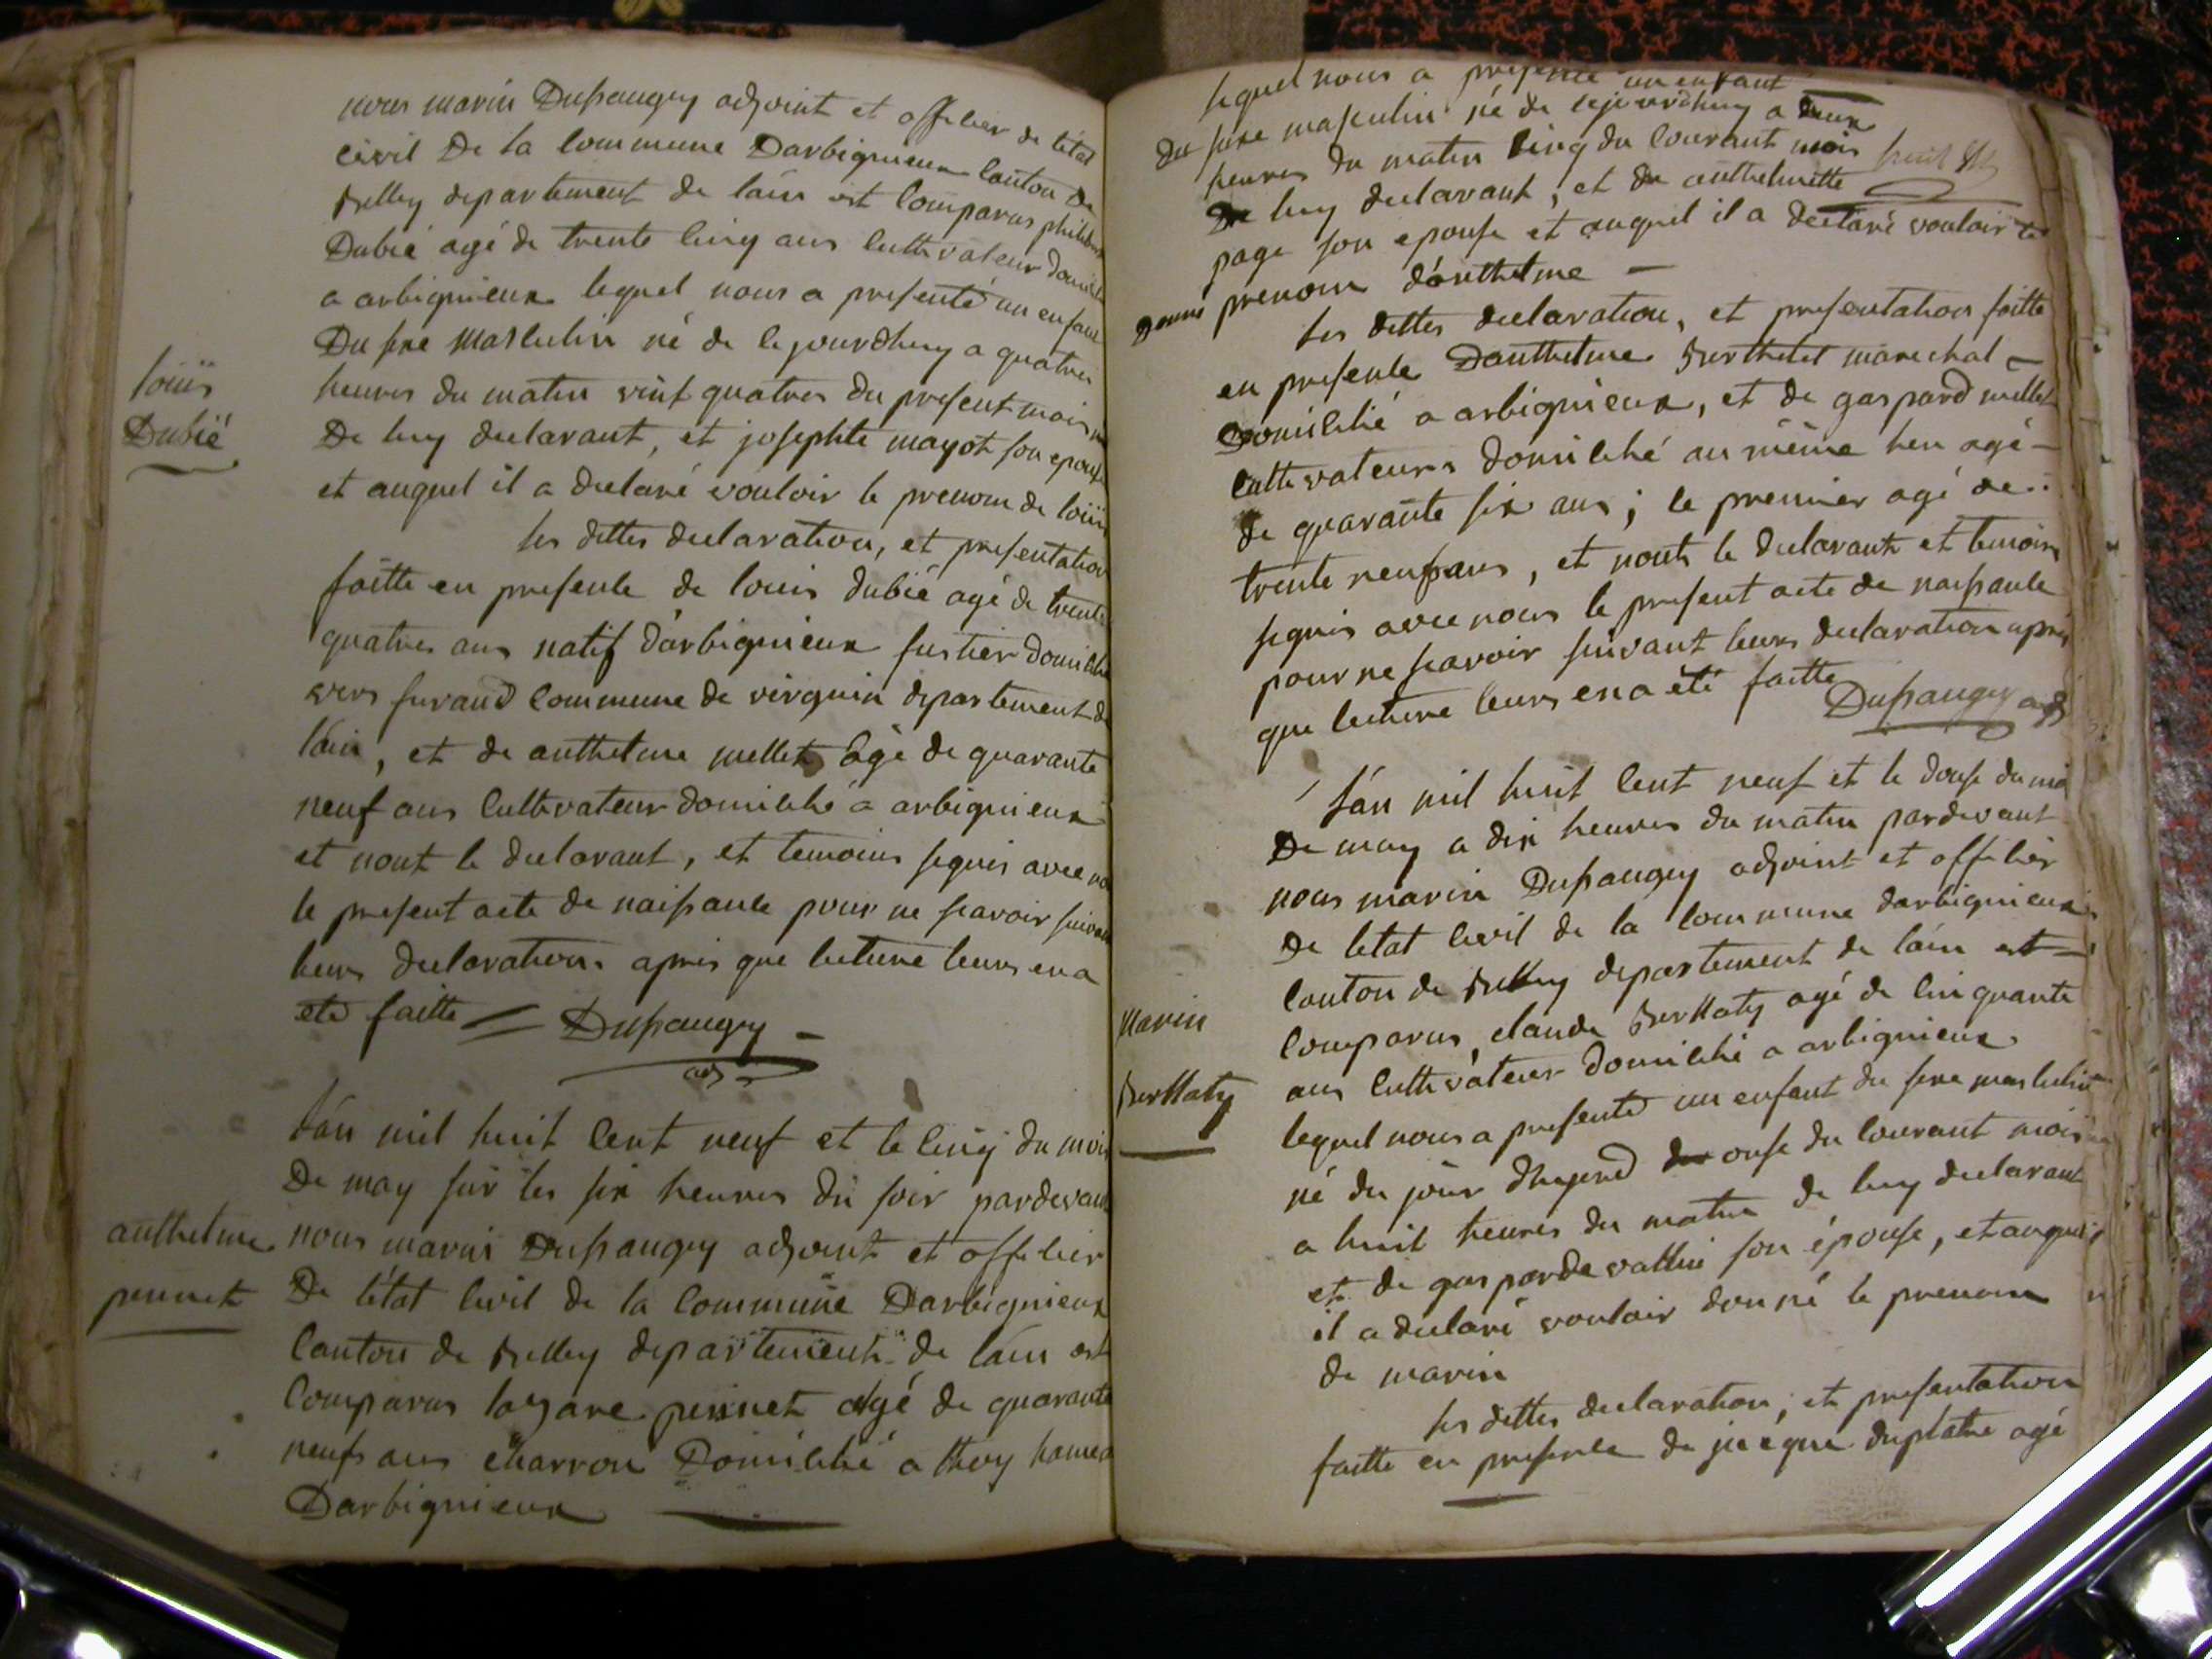 nous marin Dupaugey adjoint et officier de létat
civil De la commune Darbignieux canton De
belley departement de láin est comparus philibert
Dubié agé de trente cinq ans cultivateur domicilié
a arbignieux lequel nous a presenté un enfant
Du sexe Masculin né de cejourdhuy a quatres
heures du matin vint quatres du present mois
De luy declarant, et josephte mayot son epouse
et auquel il a declaré vouloir le prenom de loüis
loüis
Dubié
les dittes declaration, et presentation
faitte en presence de louis dubié agé de trente
quatres ans natif dárbignieux fustier domicilié
vers furand commune de virignin departement de
láin, et de anthelme mellet âgé de quarante
neuf ans cultivateur domicilié a arbignieux
et nont le declarant, et temoins signés avec nous
le present acte de naissance pour ne scavoir suivant
leurs declaration. apres que lecture leurs en a
eté faitte Dupaugey
adj
Lán mil huit cent neuf et le cinq du mois
De may sür les six heures du soir pardevant
nous marin Dupaugey adjoint et officier
De létat civil de la commune Darbignieux
canton de belley departement de láin est
comparus lazare pennet agé de quarante
neufs ans charron Domicilié a thoy hameau
Darbignieux
anthelme
pennet
lequel nous a presenté un enfant
du sexe masculin né de cejourdhuy a deux
heures du matin cinq du courant mois
De luy declarant, et de anthelmette
page son epouse et auquel il a declaré vouloir le
donné prenom dánthelme
les dittes declaration, et presentation faitte
en presence Danthelme berthelet marechal
Domicilié a arbignieux, et de gaspard mellet
cultivateurs domicilié au même lieu agé
de quarante six ans; le premier agé de
trente neufs ans, et nont le declarant et temoins
signés avec nous le present acte de naissance
pour ne scavoir suivant leurs declaration apres
que lecture leurs en a été faitte
Dupaugey adj
Lán mil huit cent neuf et le douse du moi
De may a dix heures du matin pardevant
nous marin Dupaugey adjoint et officier
De létat civil de la commune darbignieux
canton de belley departement de láin est
comparus, claude berllaty agé de cinquante
ans cultivateur domicilié a arbignieux
lequel nous a presenté un enfant du sexe masculin
né du jour dhyerd onse du courant mois
a huit heures du matin de luy declarant
et de gasparde vallin son épouse, et auquel
il a declaré vouloir donné le prenom
de marin
Marin
berllaty
les dittes declaration, et presentation
faitte en presence de jacque duplatre agé